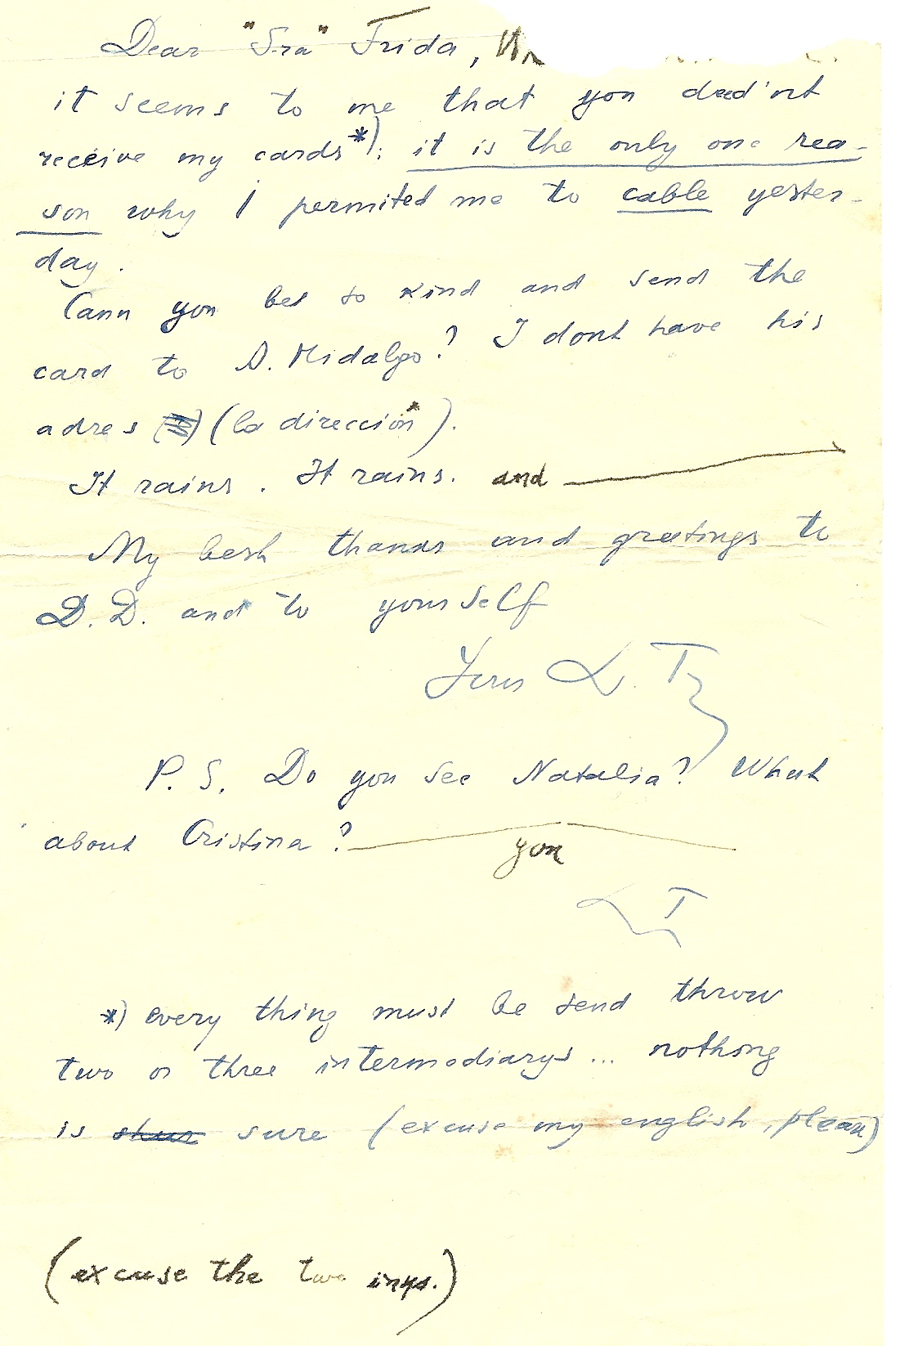 Dear "Sra" Frida,
it seems to me that you deed'nt
receive my cards*): it is the only one rea-
son why I permited me to cable yester-
day.
Cann you bee so kind and send the
card to A. Hidalgo? I dont have his
adres (la dirección).
It rains. It rains. and
My best thanks and greetings to
D.D. and to yourself
Yours L.T.
P.S. Do you see Natalia? What
about Cristina?
you
LT
*) every thing must be send throw
two or three intermediarys... nothing
is shur sure (excuse my english, please)
(excuse the two inks.)